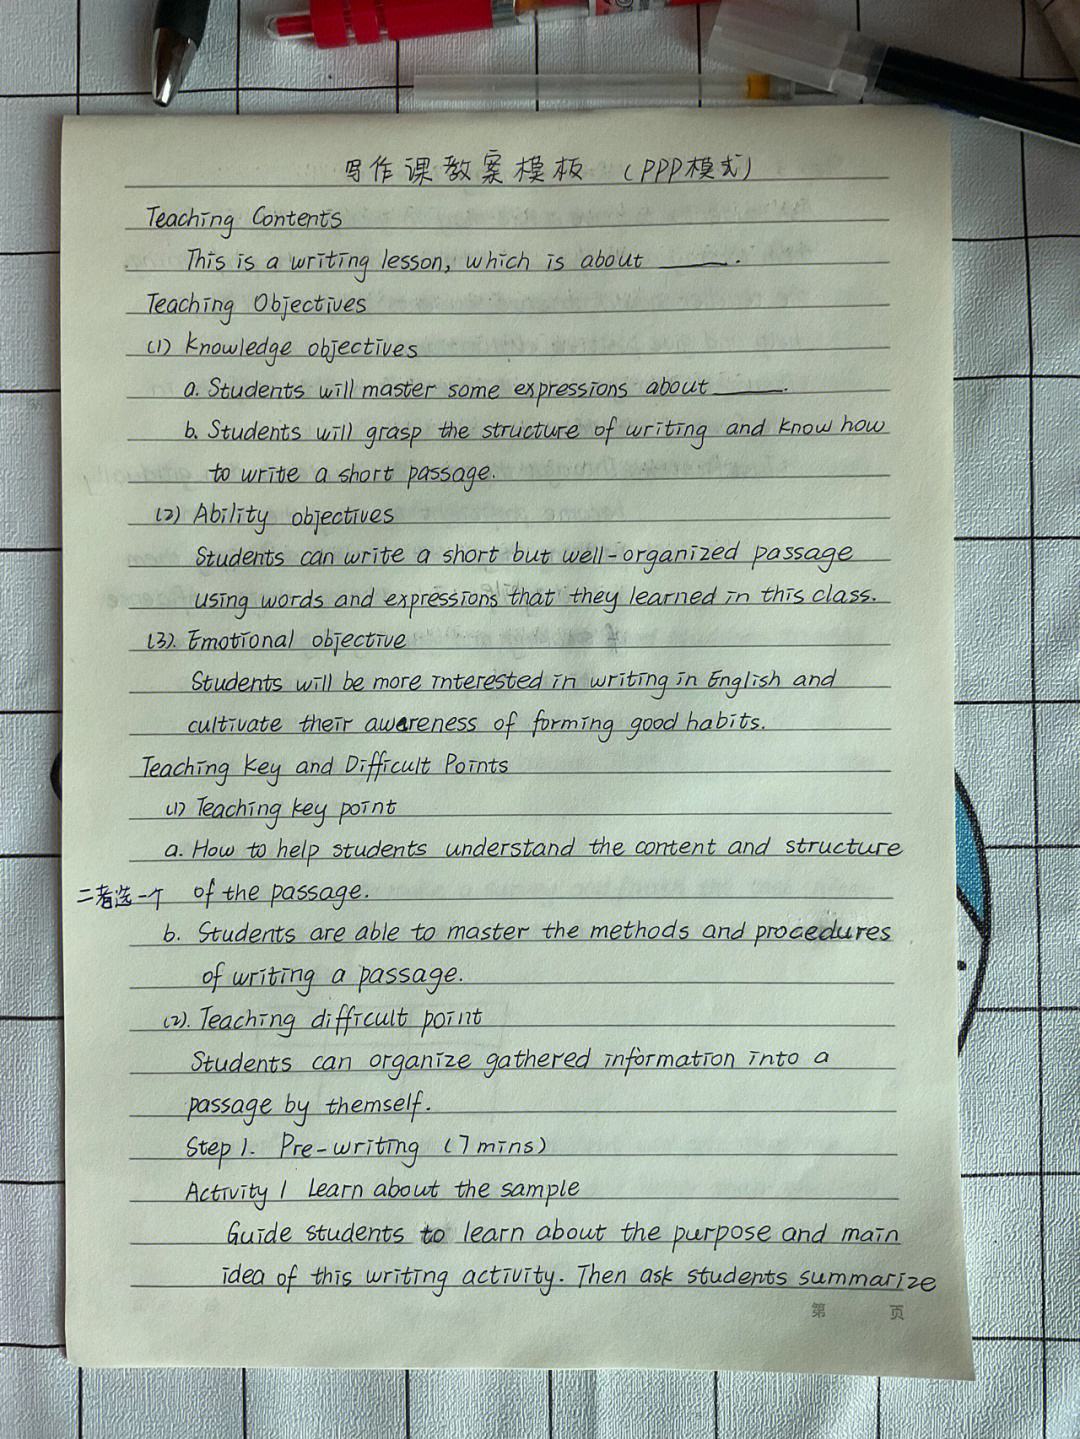 写作课教案模板 (PPP模式)
Teaching Contents
This is a writing lesson, which is about ____.
Teaching Objectives
(1) Knowledge objectives
a. Students will master some expressions about ____.
b. Students will grasp the structure of writing and know how
to write a short passage.
(2) Ability objectives
Students can write a short but well-organized passage
using words and expressions that they learned in this class.
(3). Emotional objective
Students will be more interested in writing in English and
cultivate their awareness of forming good habits.
Teaching Key and Difficult Points
(1) Teaching key point
a. How to help students understand the content and structure
二者选一个 of the passage.
b. Students are able to master the methods and procedures
of writing a passage.
(2). Teaching difficult point
Students can organize gathered information into a
passage by themself.
Step 1. Pre-writing (7 mins)
Activity 1 Learn about the sample
Guide students to learn about the purpose and main
idea of this writing activity. Then ask students summarize
第 页